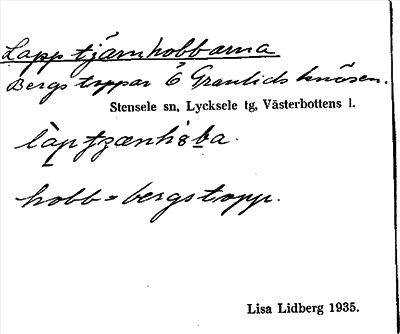 Lapptjärnhobbarna
Bergstoppar Ö Granlidsknösen.
Stensele sn, Lycksele tg, Västerbottens l.
hobb = bergstopp.
Lisa Lidberg 1935.